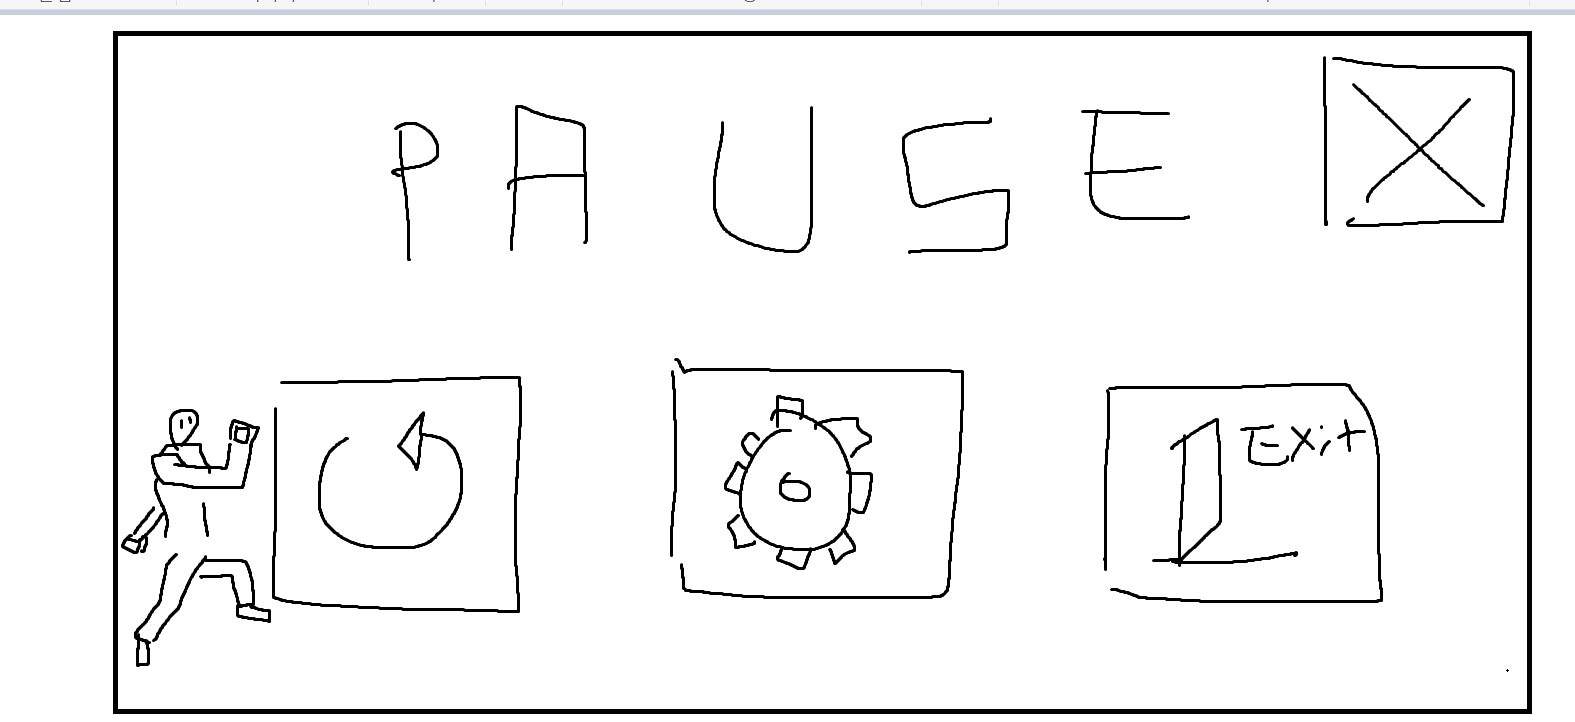 PAUSE
Exit